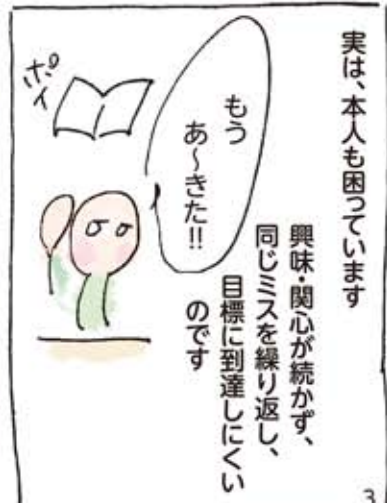 実は、本人も困っています
興味・関心が続かず、
同じミスを繰り返し、
目標に到達しにくい
のです
もう
あ〜きた!!
ポイ
3